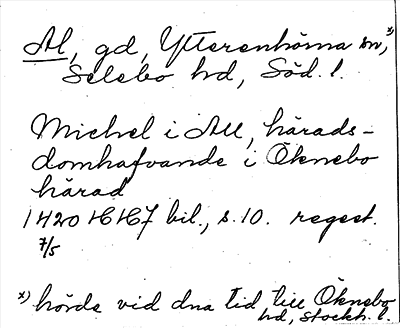 Al, gd, Ytterenhörna sn, x)
Selebo hd, Söd. l.
Michel i All, härads-
domhafvande i Öknebo
härad
1420 16167 bil., s. 10. regest.
7/5
x) hörde vid dna tid till Öknebo
hd, Stockh. l.